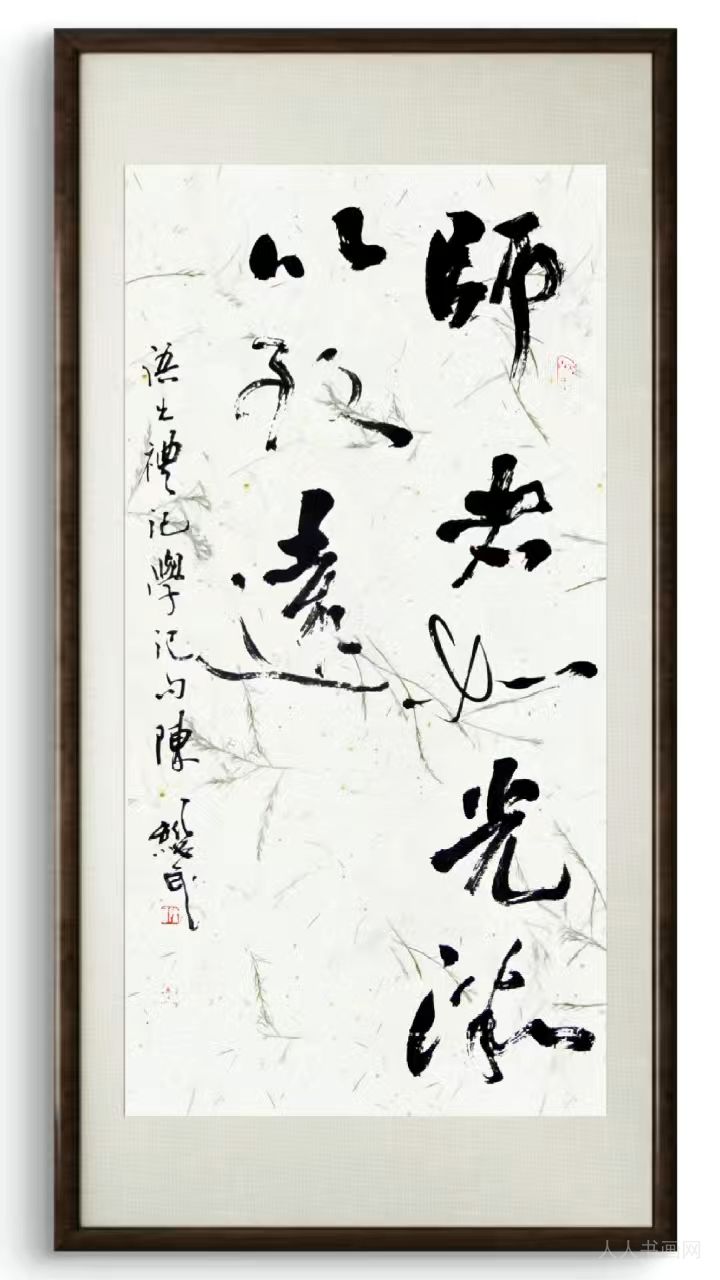 師者如光微
以致遠
語出禮記學記句陳
人人书画网